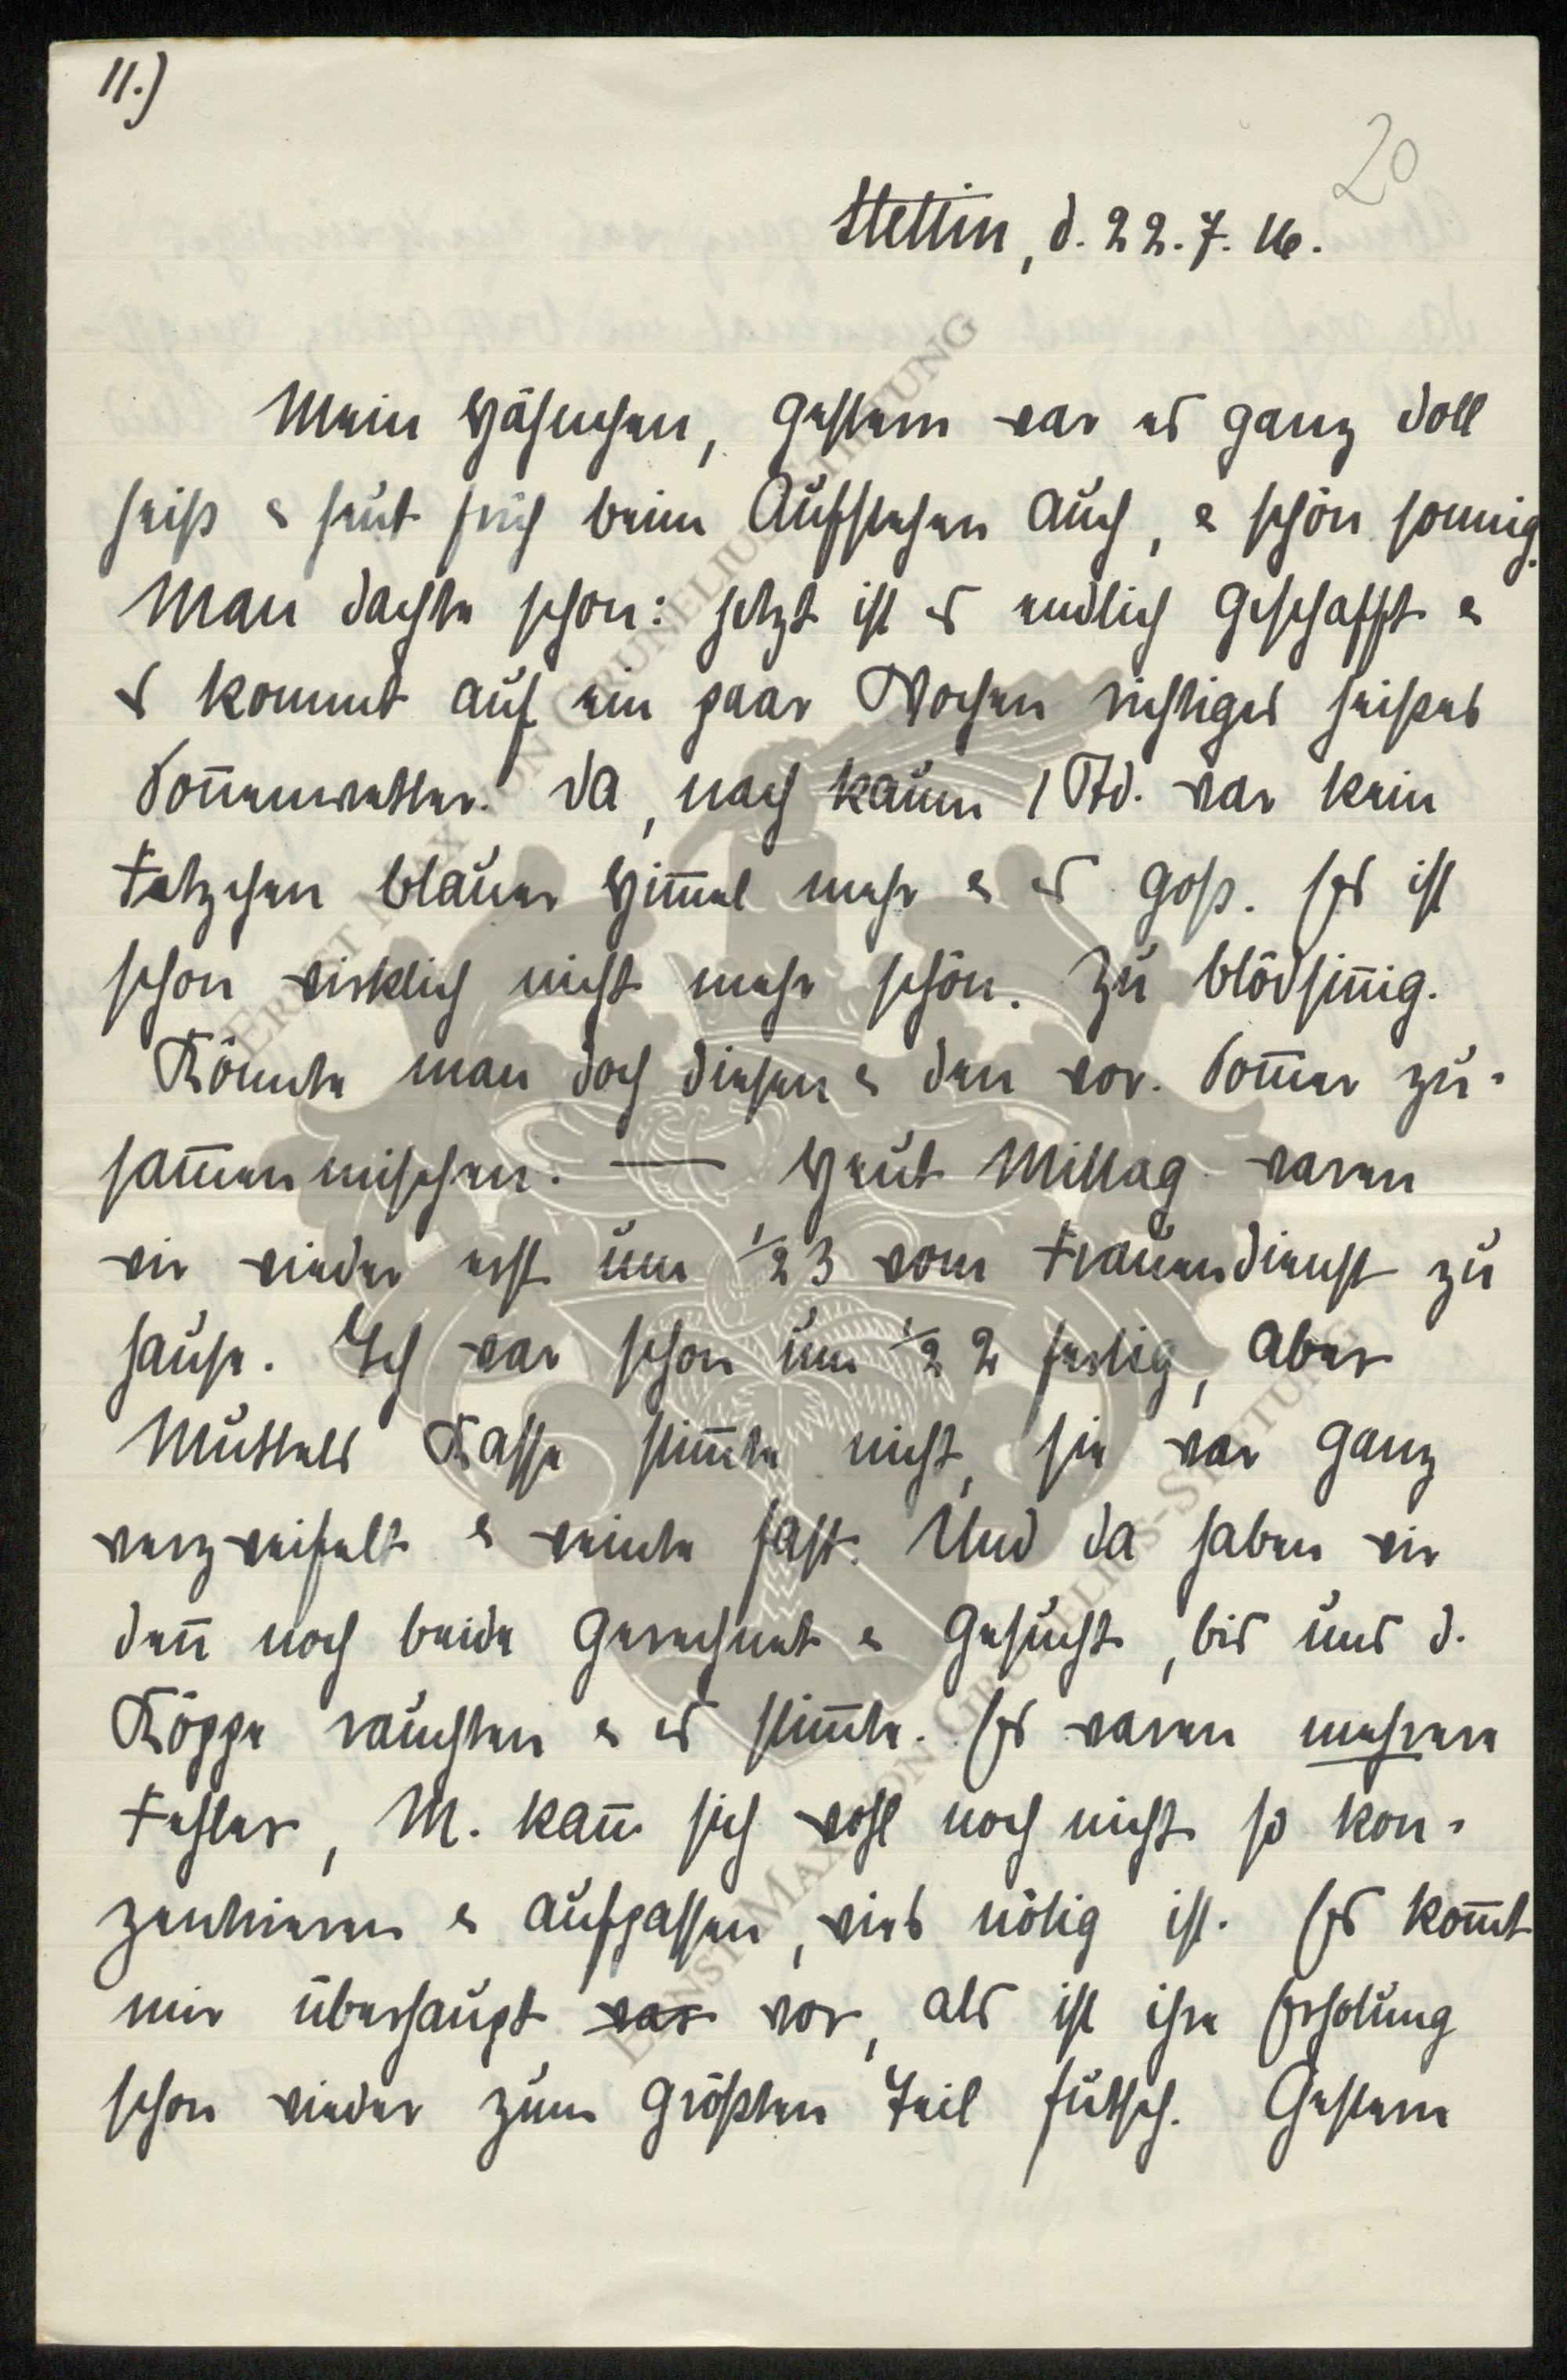 11.)
20
Stettin, d. 22.7.16.
Mein Häschen, gestern war es ganz doll
heiß & heut früh beim Aufstehen auch, & schön sonnig.
Man dachte schon: jetzt ist es endlich geschafft &
es kommt auf ein paar Wochen richtiges heißes
Son̅enwetter. Da, nach kaum 1 Std. war kein
Fetzchen blauer Him̅el mehr & es goß. Es ist
schon wirklich nicht mehr schön. Zu blödsin̅ig.
Könnte man doch diesen & den vor. Som̅er zu-
sam̅enmischen. — Heut Mittag waren
wir wieder erst um 1/2 3 vom Frauendienst zu
hause. Ich war schon um 1/2 2 fertig, aber
Muttels Kasse stim̅te nicht, sie war ganz
verzweifelt & weinte fast. Und da haben wir
den̅ noch beide gerechnet & gesucht, bis uns d.
Köppe rauchten & es stim̅te. Es waren mehrere
Fehler, M. kan̅ sich wohl noch nicht so kon-
zentrieren & aufpassen, wies nötig ist. Es kom̅t
mir überhaupt var vor, als ist ihre Erholung
schon wieder zum größten Teil futsch. Gestern
ERNST MAX VON GRUNELIUS-STIFTUNG
ERNST MAX VON GRUNELIUS-STIFTUNG